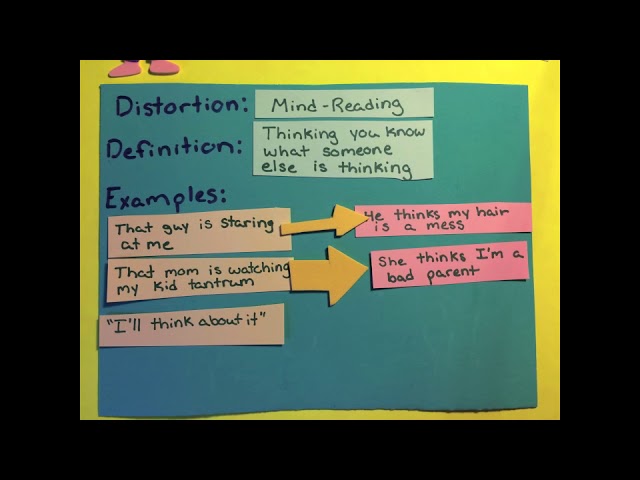 Distortion: Mind-Reading
Definition: Thinking you know
what someone
else is thinking
Examples:
That guy is staring
at me
He thinks my hair
is a mess
That mom is watching
my kid tantrum
She thinks I'm a
bad parent
"I'll think about it"